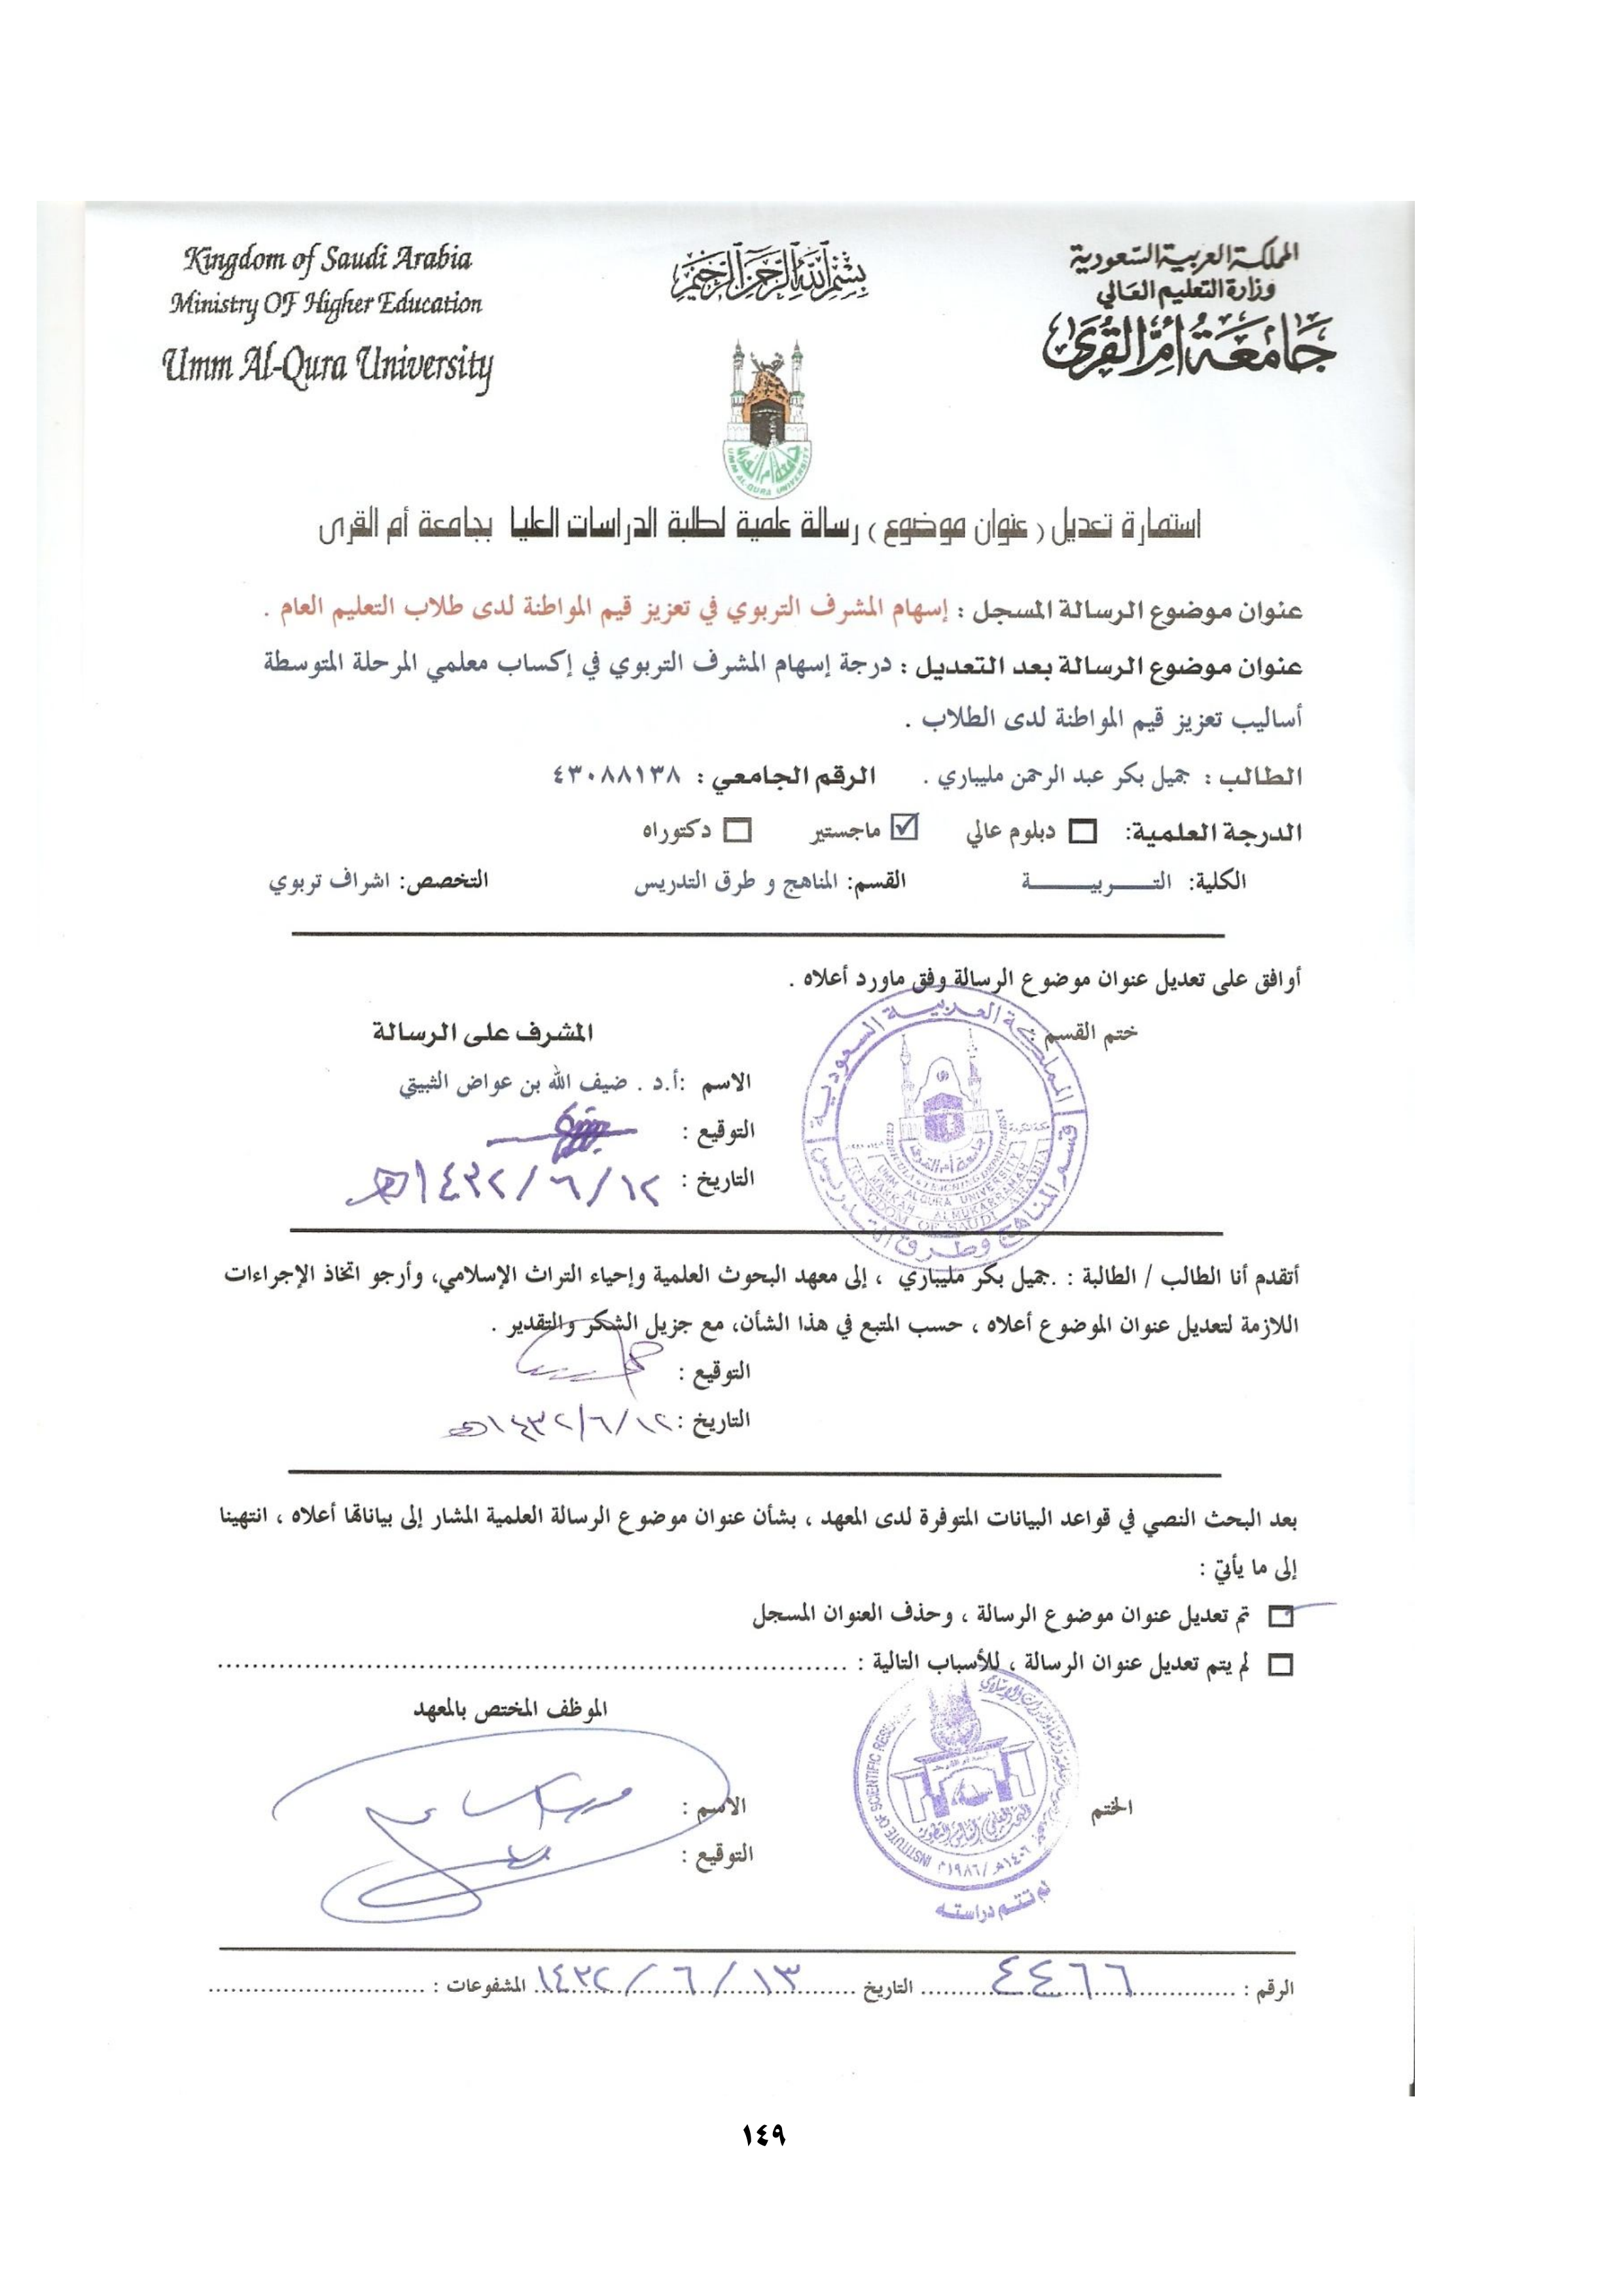 المملكة العربية السعودية
وزارة التعليم العالي
جامعة أم القرى
بسم الله الرحمن الرحيم
Kingdom of Saudi Arabia
Ministry OF Higher Education
Umm Al-Qura University
جامعة أم القرى
UMM AL-QURA UNIVERSITY
استمارة تعديل ( عنوان موضوع ) رسالة علمية لطلبة الدراسات العليا بجامعة أم القرى
عنوان موضوع الرسالة المسجل : إسهام المشرف التربوي في تعزيز قيم المواطنة لدى طلاب التعليم العام .
عنوان موضوع الرسالة بعد التعديل : درجة إسهام المشرف التربوي في إكساب معلمي المرحلة المتوسطة
أساليب تعزيز قيم المواطنة لدى الطلاب .
الطالب : جميل بكر عبد الرحمن مليباري . الرقم الجامعي : ٤٣٠٨٨١٣٨
الدرجة العلمية: دبلوم عالي ماجستير دكتوراه
الكلية: التـــــربيـــــــة القسم: المناهج و طرق التدريس التخصص: اشراف تربوي
أوافق على تعديل عنوان موضوع الرسالة وفق ماورد أعلاه .
ختم القسم : المشرف على الرسالة
المملكة العربية السعودية
قسم المناهج وطرق التدريس
جامعة أم القرى
UMM ALQURA UNIVERSITY
MAKKAH ALMUKARRAMAH
KINGDOM OF SAUDI ARABIA
الاسم :أ.د . ضيف الله بن عواض الثبيتي
التوقيع :
التاريخ : ١٢/٦/١٤٣٢هـ
أتقدم أنا الطالب / الطالبة : .جميل بكر مليباري ، إلى معهد البحوث العلمية وإحياء التراث الإسلامي، وأرجو اتخاذ الإجراءات
اللازمة لتعديل عنوان الموضوع أعلاه ، حسب المتبع في هذا الشأن، مع جزيل الشكر والتقدير .
التوقيع :
التاريخ : ١٢/٦/١٤٣٢هـ
بعد البحث النصي في قواعد البيانات المتوفرة لدى المعهد ، بشأن عنوان موضوع الرسالة العلمية المشار إلى بياناتها أعلاه ، انتهينا
إلى ما يأتي :
تم تعديل عنوان موضوع الرسالة ، وحذف العنوان المسجل
لم يتم تعديل عنوان الرسالة ، للأسباب التالية : ........................................................................
الموظف المختص بالمعهد
الختم
INSTITUTE OF SCIENTIFIC RESEARCH
١٤٠٦هـ /١٩٨٦م
لم تتم دراسته
الاسم :
التوقيع :
الرقم : ٤٤٦٦ التاريخ ١٣/٦/١٤٣٢ المشفوعات : ..............................
١٤٩